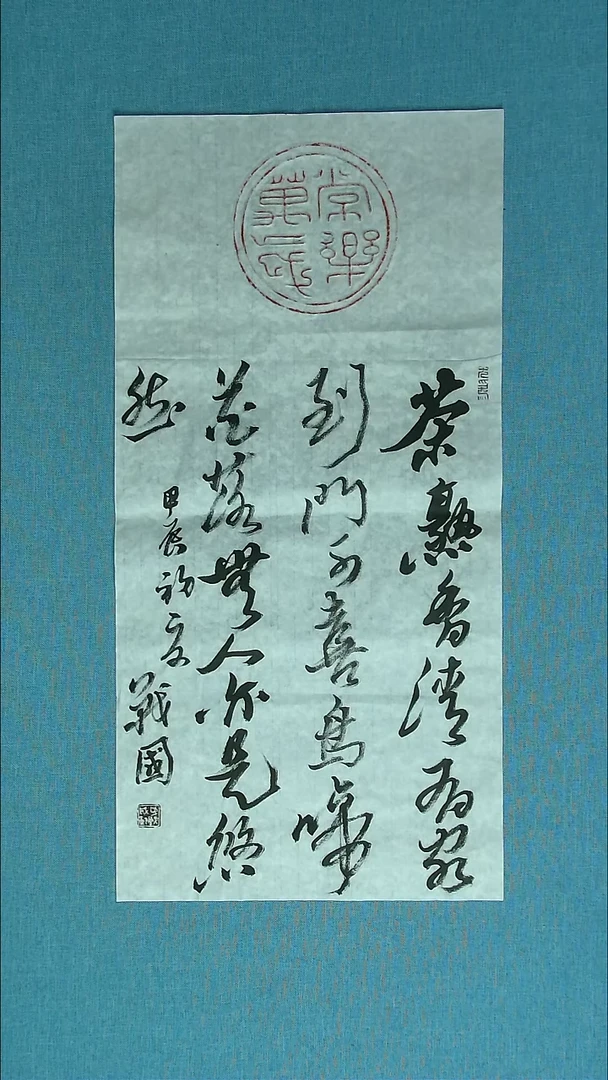 常樂萬歲
茶熟香清有客
到門可喜鳥啼
花落無人亦是悠
然
甲辰初夏
戰國